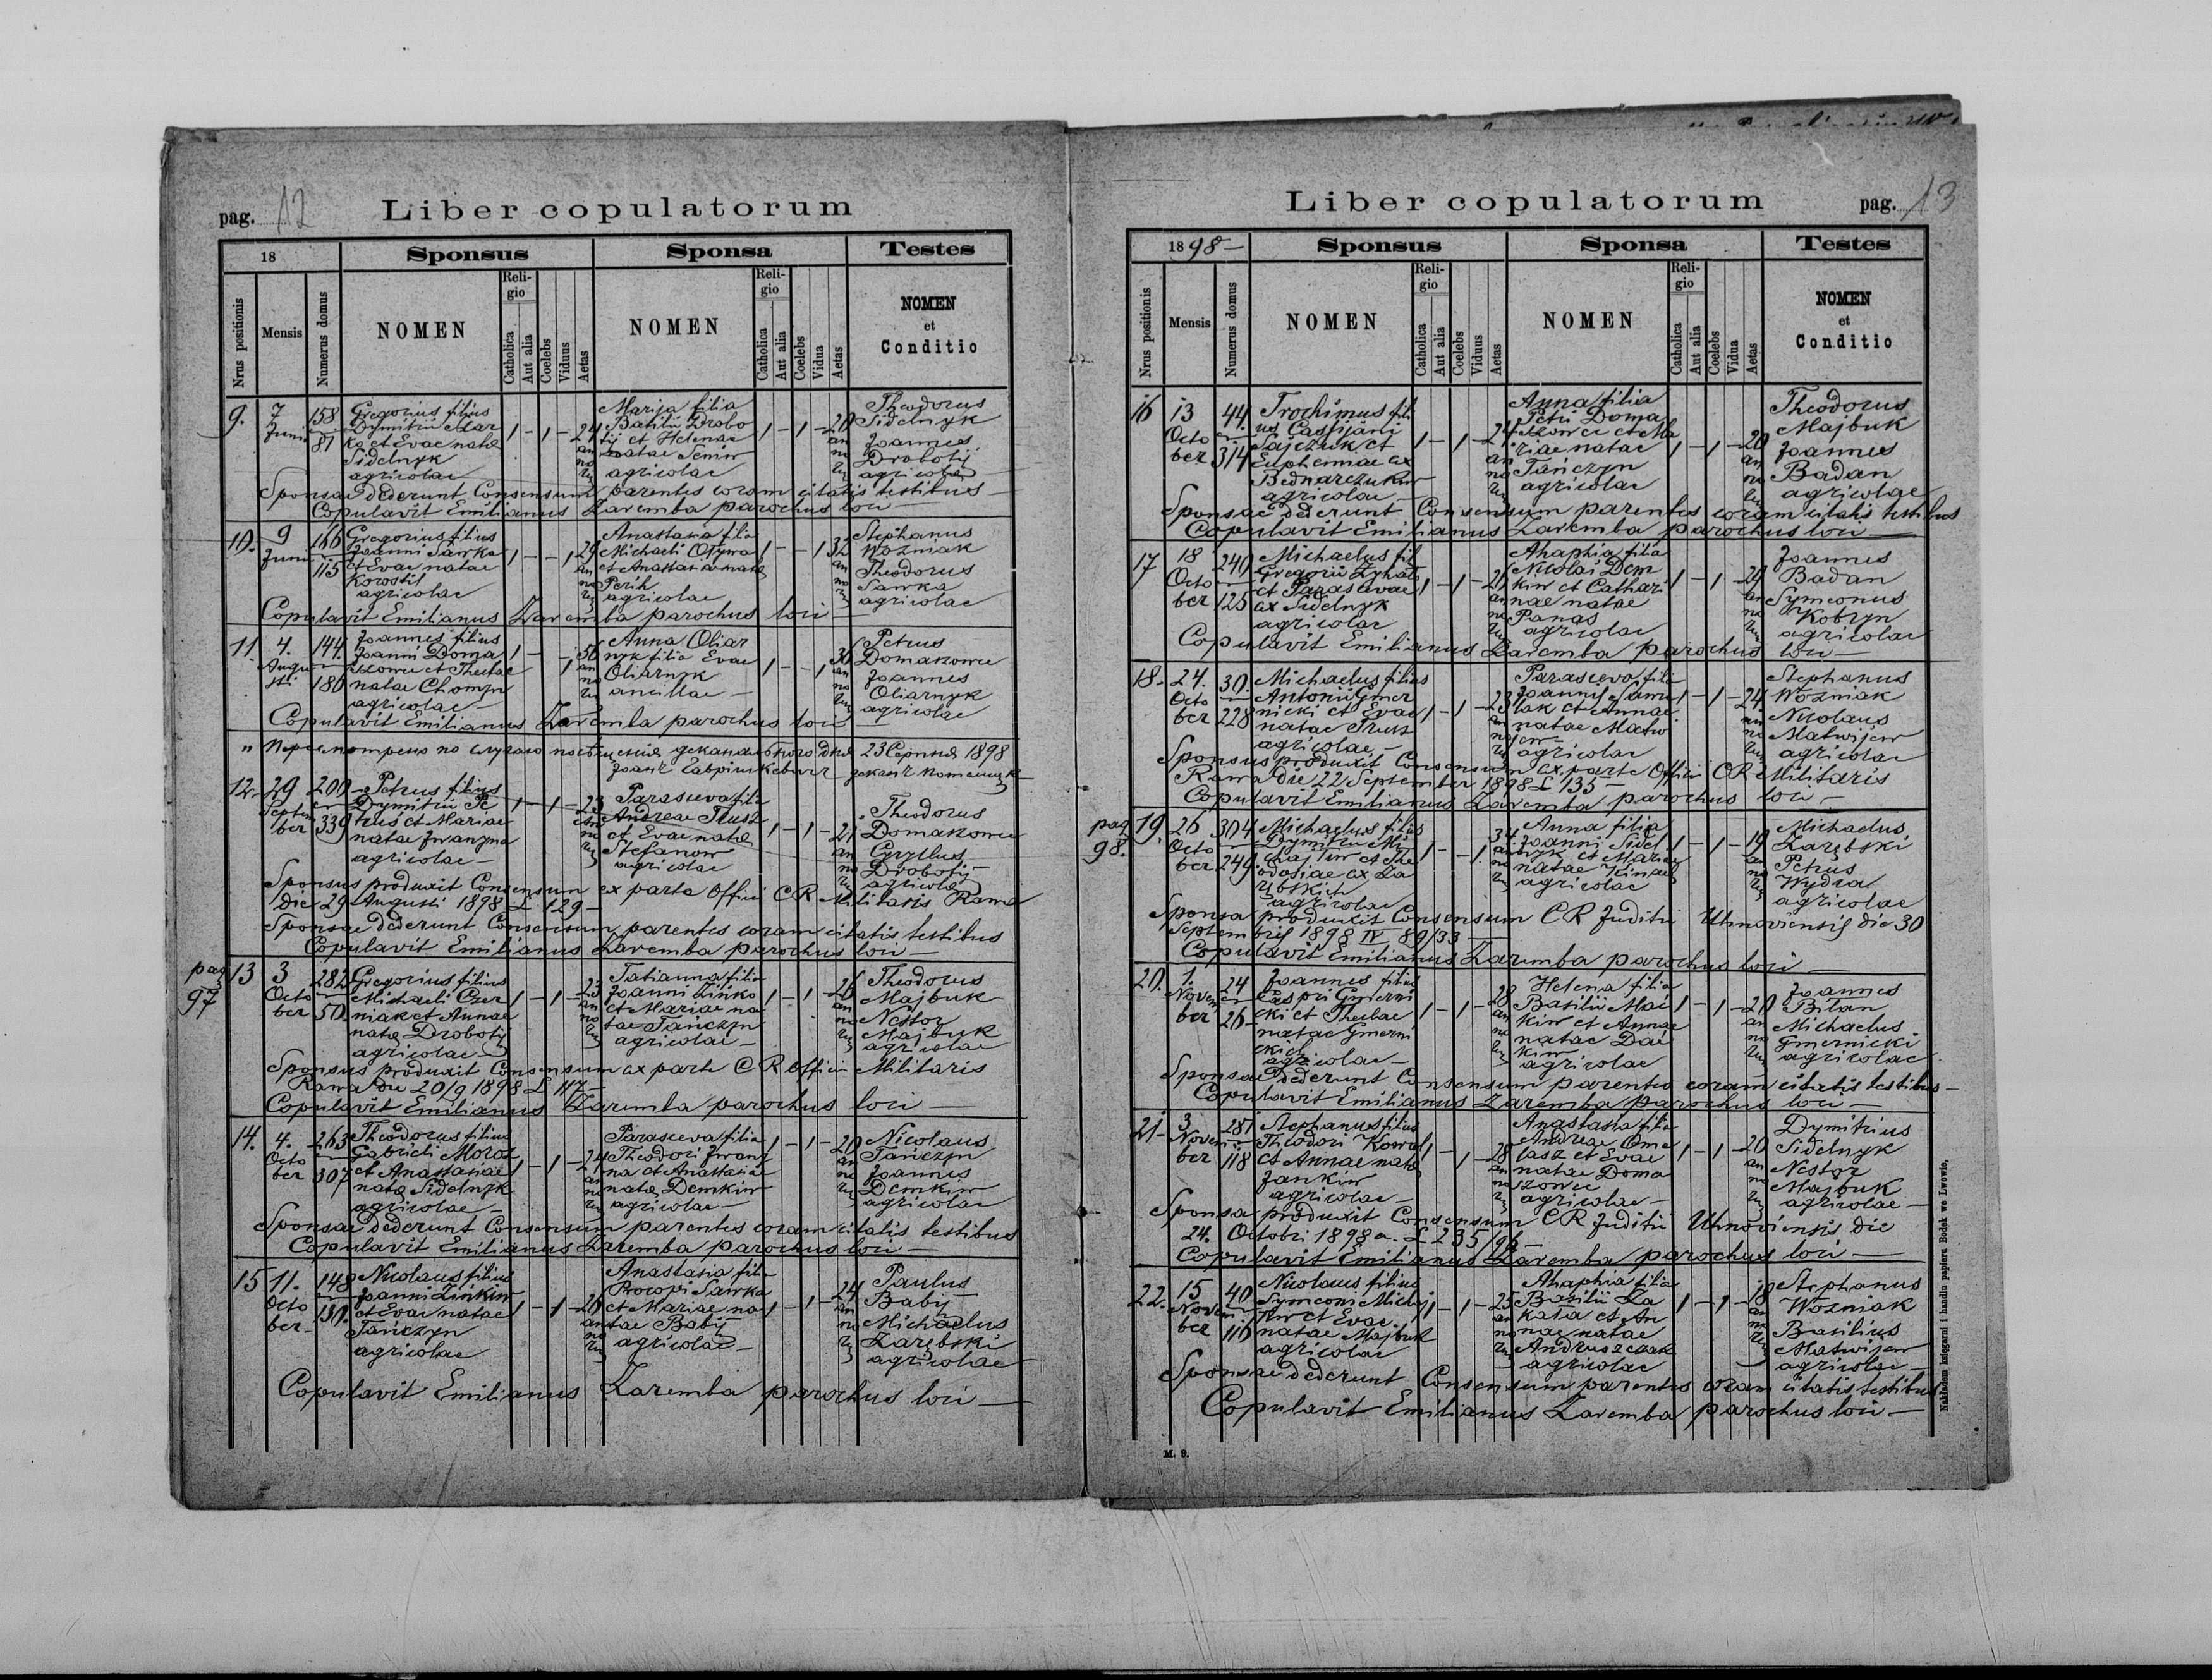 pag. 12
Liber copulatorum
18
Sponsus
Sponsa
Testes
Nrus positionis
Mensis
Numerus domus
NOMEN
Religio
Catholica
Aut alia
Coelebs
Viduus
Aetas
NOMEN
Religio
Catholica
Aut alia
Coelebs
Vidua
Aetas
NOMEN
et
Conditio
9.
7
Junii
158
81
Gregorius filius
Dymitrii
ko et Evae natae
Sidelnyk
agricolae
1 - 1 - 24
annorum
Marija filia
Basilii Drobo
tij et Helenae
natae Seniw
agricolae
1 - 1 - 20
annorum
Theodorus
Sidelnyk
Joannes
Drobotij
agricolae
Sponsae dederunt Consensum parentes coram citatis testibus
Copulavit Emilianus Zaremba parochus loci
10.
9
Junii
166
115
Gregorius filius
Joanni Sawka
et Evae natae
Korostil
agricolae
1 - - 1 29
annorum
Anastasia filia
Michaeli
et Anastasiae natae
Perih
agricolae
1 - - 1 32
annorum
Stephanus
Wozniak
Theodorus
Sawka
agricolae
Copulavit Emilianus Zaremba parochus loci
11.
4.
Augusti
144
180
Joannes filius
Joanni Doma
szowec et Theclae
natae Chomyn
agricolae
1 - - 1 56
annorum
Anna Oliar
nyk filia Evae
Oliarnyk
ancillae
1 - - 1 36
annorum
Petrus
Domaszowec
Joannes
Oliarnyk
agricolae
Copulavit Emilianus Zaremba parochus loci
" Пересмотрено по случаю посѣщенія деканальского дня 23 Серпня 1898
12.
29
September
200
339
Petrus filius
Dymitrii Pe
trus et Mariae
natae Iwanyna
agricolae
1 - 1 - 23
annorum
Parasceva filia
Andreae Trusz
et Evae natae
Stefanow
agricolae
1 - 1 - 21
annorum
Theodorus
Domaszowec
Cyryllus
Drobotij
agricolae
Sponsus produxit Consensum ex parte Officii CR Militaris Rawa
die 29 Augusti 1898 L 129
Sponsae dederunt Consensum parentes coram citatis testibus
Copulavit Emilianus Zaremba parochus loci
pag
97
13
3
October
282
50.
Gregorius filius
Michaeli Czer
niak et Annae
natae Drobotij
agricolae
1 - 1 - 23
annorum
Tatianna filia
Joanni Zinko
et Mariae na
tae Tanczyn
agricolae
1 - 1 - 26
annorum
Theodorus
Majbuk
Nestor
Majbuk
agricolae
Sponsus produxit Consensum ex parte CR Officii Militaris
Rawa die 20/9 1898 L 117
Copulavit Emilianus Zaremba parochus loci
14.
4.
October
263
307
Theodorus filius
Gabrieli Moroz
et Anastasiae
natae Sidelnyk
agricolae
1 - 1 - 24
annorum
Parasceva filia
Theodori Iwany
na et Anastasiae
natae Demkiw
agricolae
1 - 1 - 20
annorum
Nicolaus
Tanczyn
Joannes
Demkiw
agricolae
Sponsae dederunt Consensum parentes coram citatis testibus
Copulavit Emilianus Zaremba parochus loci
15
11.
October
148
130.
Nicolaus filius
Joanni Zinkiw
et Evae natae
Tanczyn
agricolae
1 - 1 - 26
annorum
Anastasia filia
Procopi Sawka
et Mariae na
tae Babij
agricolae
1 - 1 - 24
annorum
Paulus
Babij
Michaelus
Zarębski
agricolae
Copulavit Emilianus Zaremba parochus loci
Liber copulatorum
pag. 13
1898
Sponsus
Sponsa
Testes
Nrus positionis
Mensis
Numerus domus
NOMEN
Religio
Catholica
Aut alia
Coelebs
Viduus
Aetas
NOMEN
Religio
Catholica
Aut alia
Coelebs
Vidua
Aetas
NOMEN
et
Conditio
16
13
October
44
314
Trochimus fili
us Cassijani
Sajczuk et
Euphemiae ex
Bednarczukiw
agricolae
1 - 1 - 24
annorum
Anna filia
Petri Doma
szowec et Ma
riae natae
Tanczyn
agricolae
1 - 1 - 20
annorum
Theodorus
Majbuk
Joannes
Badan
agricolae
Sponsae dederunt Consensum parentes coram citatis testibus
Copulavit Emilianus Zaremba parochus loci
17
18
October
240
125
Michaelus fil
Gregorii
et Parascevae
ex Sidelnyk
agricolae
1 - 1 - 26
annorum
Ahaphia filia
Nicolai Dem
kiw et Cathari
nae natae
Panas
agricolae
1 - 1 - 24
annorum
Joannes
Badan
Symeonus
Kobryn
agricolae
Copulavit Emilianus Zaremba parochus loci
18.
24.
October
30.
228
Michaelus filius
Antonii Gmer
nicki et Evae
natae Trusz
agricolae
1 - 1 - 23
annorum
Parasceva filia
Joannis
lak et Annae
natae Matw
jew
agricolae
1 - 1 - 24
annorum
Stephanus
Wozniak
Nicolaus
Matwijew
agricolae
Sponsus produxit Consensum ex parte Officii CR Militaris
Rawa die 22 September 1898 L 135
Copulavit Emilianus Zaremba parochus loci
pag
98.
19.
26
October
304
249.
Michaelus filius
Dymitrii Mi
chajliw et The
odosiae ex Za
rębskich
agricolae
1 - - 1. 34
annorum
Anna filia
Joanni Sidel
nyk et Mariae
natae Kinach
agricolae
1 - 1 - 19
annorum
Michaelus
Zarębski
Petrus
Wydra
agricolae
Sponsa produxit Consensum CR Juditii Uhnoviensis die 30
Septembris 1898 IV 89/33
Copulavit Emilianus Zaremba parochus loci
20.
1.
November
24
26
Joannes filius
Caspri Gmerni
cki et Theclae
natae Gmerni
ckich
agricolae
1 - 1 - 28
annorum
Helena filia
Basilii Mać
kiw et Annae
natae Dać
kiw
agricolae
1 - 1 - 20
annorum
Joannes
Bilan
Michaelus
Gmernicki
agricolae
Sponsae dederunt Consensum parentes coram citatis testibus
Copulavit Emilianus Zaremba parochus loci
21.
3
November
281
118
Stephanus filius
Theodori Kowal
et Annae natae
Jankiw
agricolae
1 - 1 - 28
annorum
Anastasia filia
Andreae Ome
lasz et Evae
natae Doma
szowec
agricolae
1 - 1 20
annorum
Dymitrius
Sidelnyk
Nestor
Majbuk
agricolae
Sponsa produxit Consensum CR Juditii Uhnoviensis die
24. Octobri 1898 a. L 235/96
Copulavit Emilianus Zaremba parochus loci
22.
15
November
40
116
Nicolaus filius
Symeoni Michaj
liw et Evae
natae Majbuk
agricolae
1 - 1 - 25
annorum
Ahaphia filia
Basilii Za
kala et An
nae natae
Andruszczak
agricolae
1 - 1 - 18
annorum
Stephanus
Wozniak
Basilius
Matwijew
agricolae
Sponsae dederunt Consensum parentes coram citatis testibus
Copulavit Emilianus Zaremba parochus loci
M. 9.
Nakładem księgarni i handlu papieru Bodek we Lwowie.